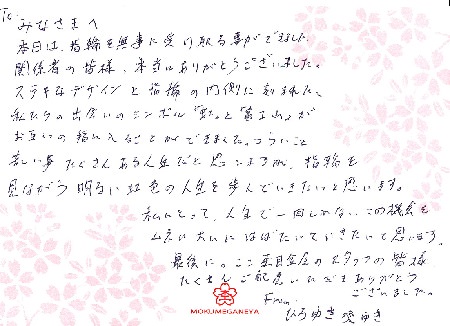 To.
みなさまへ
本日は、指輪を無事に受け取る事ができました。
関係者の皆様、本当にありがとうございました。
ステキなデザインと指輪の内側に刻まれた、
私たちの出会いのシンボル『虹』と『富士山』が
お互いの指に入ることができました。つらいこと
苦しい事たくさんある人生だと思いますが、指輪を
見ながら明るい虹色の人生を歩んでいきたいと思います。
私にとって、人生で一回しかないこの機会を
大いにはばたいていきたいて思います。
最後に。ここ杢目金屋のスタッフの皆様
たくさんご配慮いただきありがとう
ございました。
From.
ひろゆき
MOKUMEGANEYA